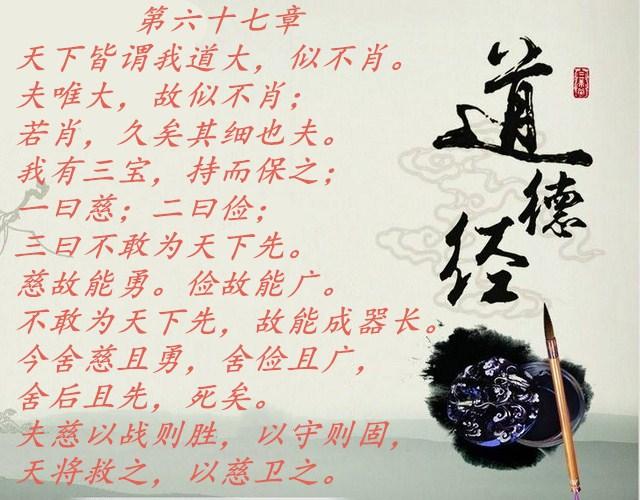 第六十七章
天下皆谓我道大，似不肖。
夫唯大，故似不肖；
若肖，久矣其细也夫。
我有三宝，持而保之；
一曰慈；二曰俭；
三曰不敢为天下先。
慈故能勇。俭故能广。
不敢为天下先，故能成器长。
今舍慈且勇，舍俭且广，
舍后且先，死矣。
夫慈以战则胜，以守则固，
天将救之，以慈卫之。
道德经